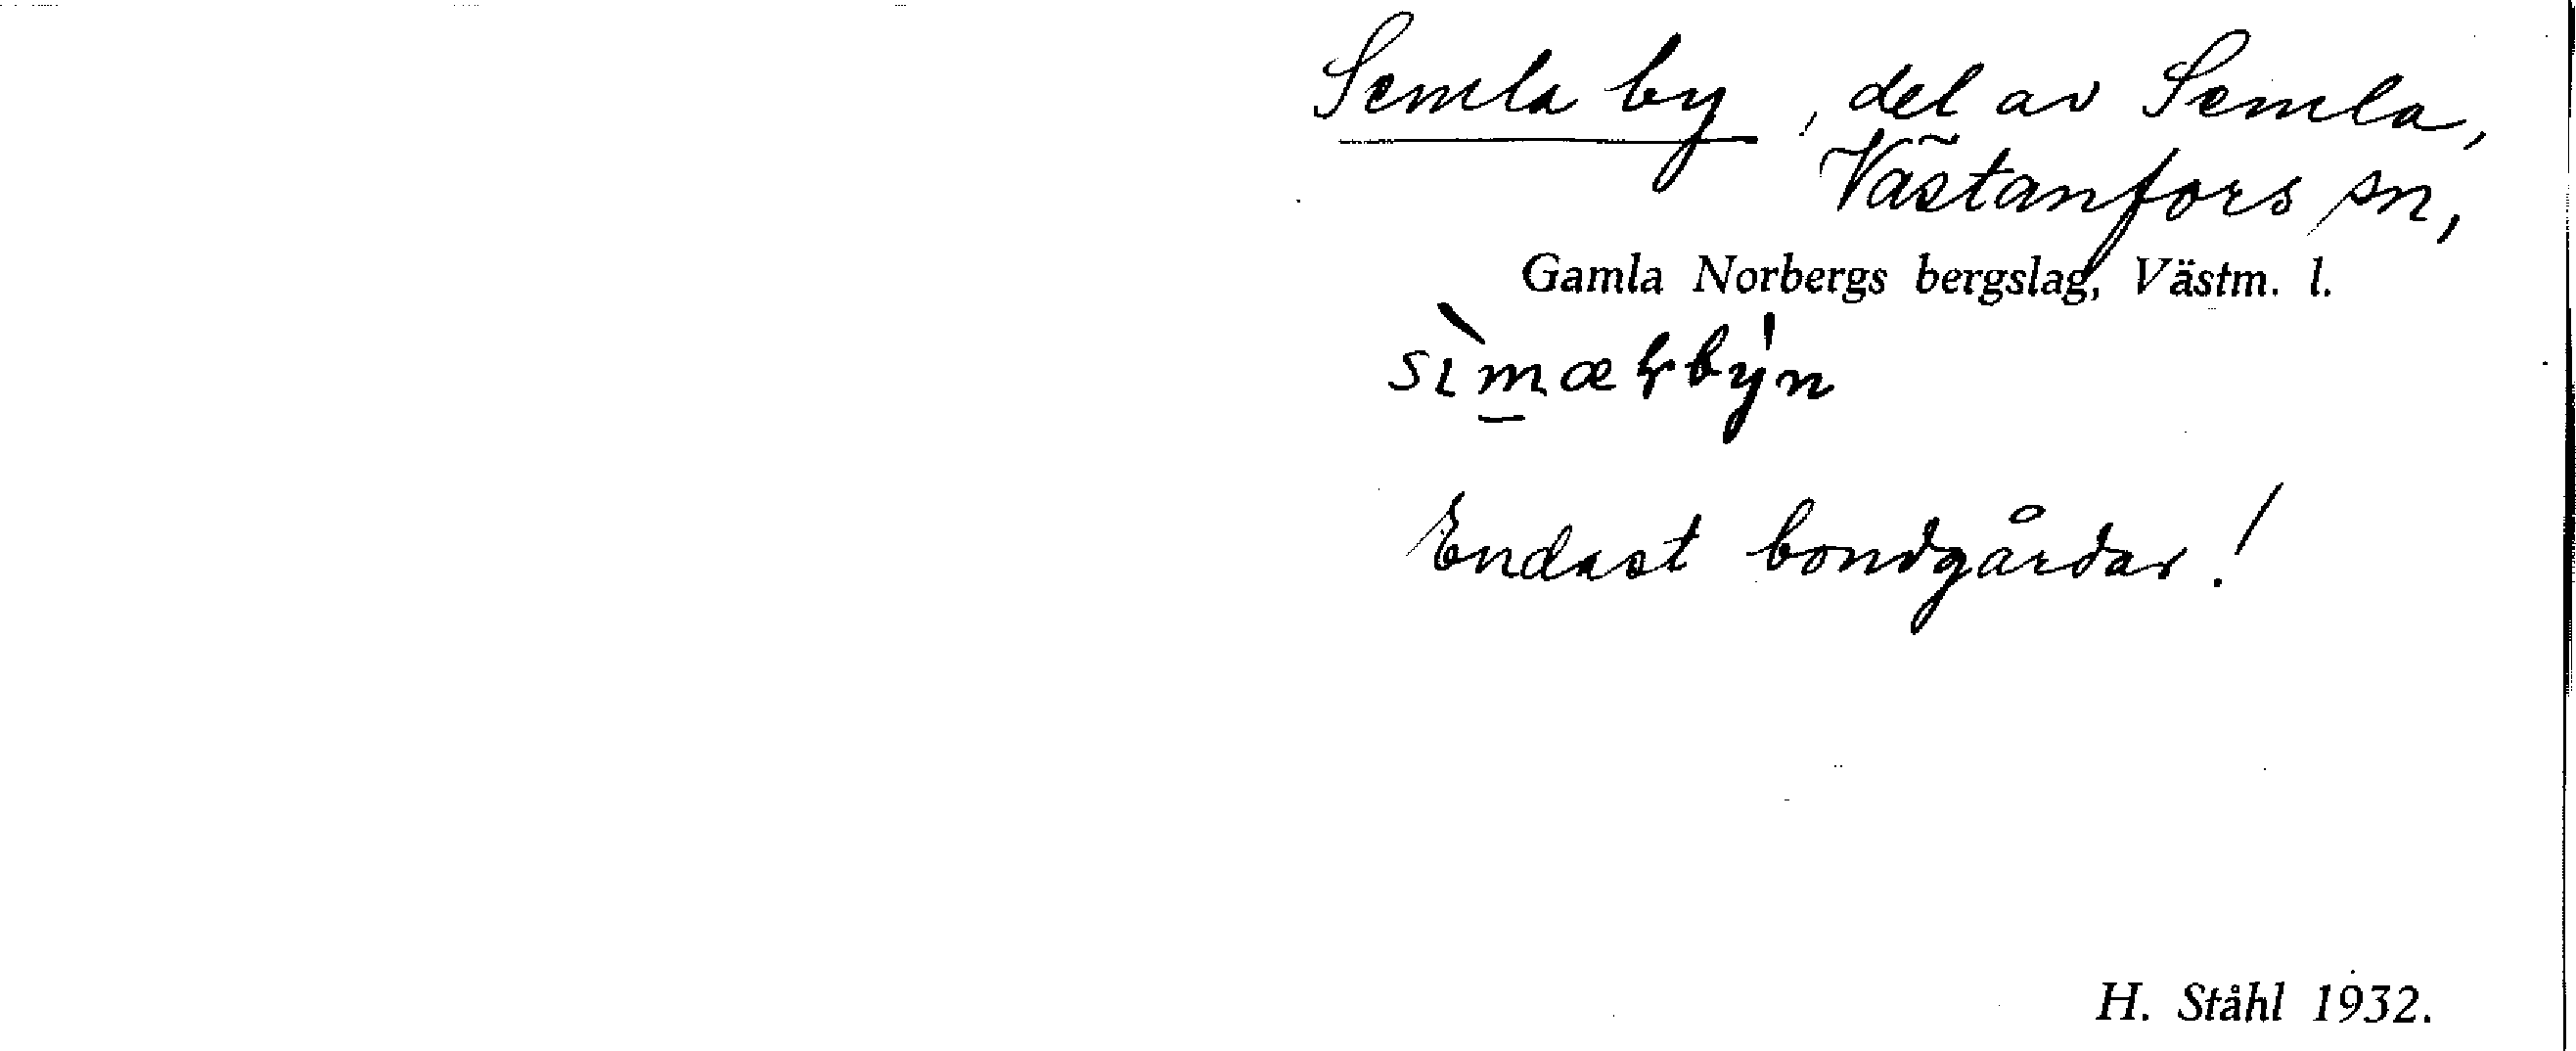 Semla by, del av Semla,
Västanfors sn,
Gamla Norbergs bergslag, Västm. l.
Endast bondgårdar!
H. Ståhl 1932.